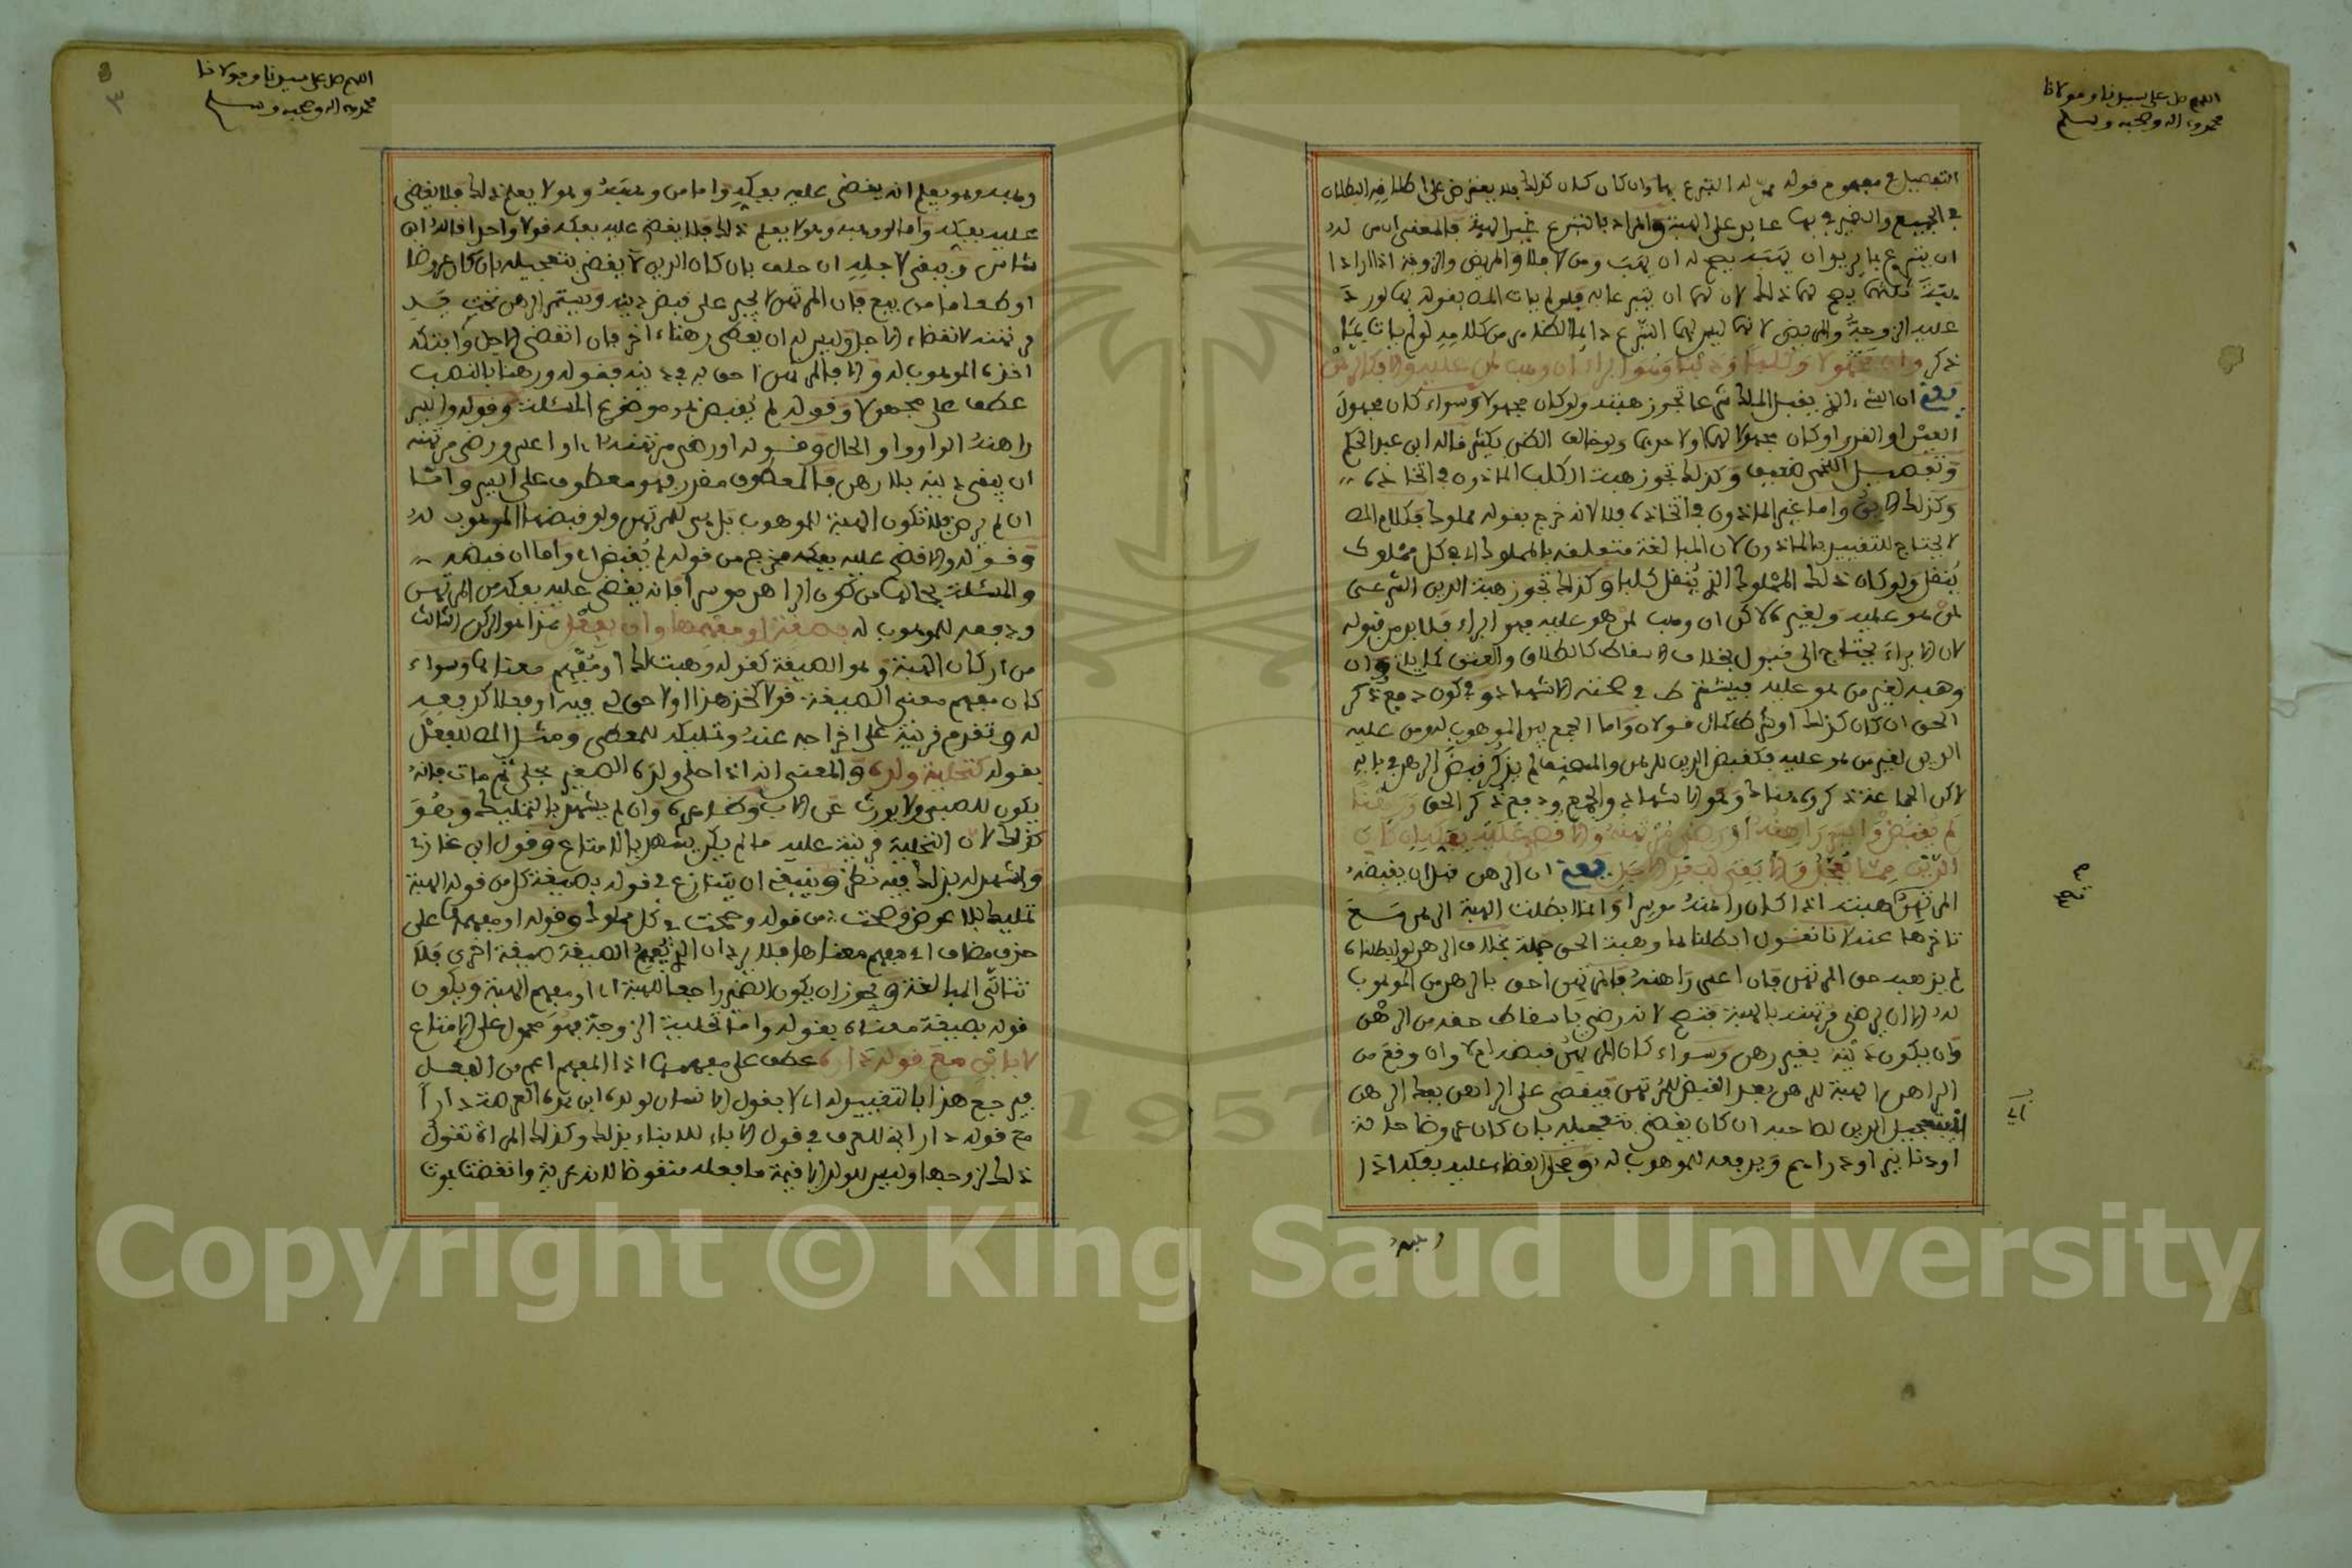 اللهم صل على سيدنا ومولانا
محمد وءاله وصحبه وسلم
التفصيل في مفهوم قوله ممن له التبرع بها وان كان كذلك فلا يعترض على اطلاقه البطلان
في الجميع والضمير في بها عايد على الهبة والمراد بالتبرع غير الهبة فالمعنى ان من له
ان يتبرع بالريع ان يهب يصح له ان يهب ومن لا فلا والمريض والزوجة اذا ارادا
هبة ثلثهما يصح لهما ذلك لان لهما ان يتبرعا به فلو لم يات المص بقوله بها لورد
عليه الزوجة والمريض لانهما ليس لهما التبرع دايما الظاهر من كلامه لو لم يات بها
ذكر وان مجهولا وكلبا ودينا وهو ابراء ان وهب لمن عليه والا فكالرهن
يعني ان الشيء الذي يقبل الملك شرعا تجوز هبته ولو كان مجهولا وسواء كان مجهول
العين او القدر او كان مجهولا لهما او لاحدهما ولو خالف الظن بكثير قاله ابن عبد الحكم
وتفصيل اللخمي ضعيف وكذلك تجوز هبة الكلب الماذون في اتخاذه
وكذلك الابق واما غير الماذون في اتخاذه فلا لانه خرج بقوله مملوك فكلام المص
لا يحتاج للتقييد بالماذون لان المبالغة متعلقة بالمملوك اي في كل مملوك
ينقل ولو كان ذلك المملوك الذي ينقل كلبا وكذلك تجوز هبة الدين الشرعي
لمن هو عليه ولغيره لاكن ان وهب لمن هو عليه فهو ابراء فلا بد من قبوله
لان الابراء يحتاج الى قبول بخلاف الاسقاط كالطلاق والعتق كما ياتي وان
وهبه لغير من هو عليه فيشترط في صحته الاشهاد وفي كون دفع ذكر
الحق ان كان كذلك او شرط كمال قولان واما الجمع بين الموهوب له ومن عليه
الدين لغير من هو عليه فكقبض الدين للرهن والمصنف لم يذكر قبض الرهن في بابه
لاكن انما عند ذكره هناك وهو الاشهاد والجمع ودفع ذكر الحق ورهنا
لم يقبض وايسر راهنه او رضي مرتهنه والا قضي عليه بفكه ان كان
الدين مما يعجل والا بقي لبعد الاجل يعني ان الرهن قبل ان يقبضه
المرتهن هبته اذا كان راهنه موسرا وانما ابطلت الهبة الرهن مع
تاخرها عنه لانا نقول ابطلناها وهبة الحق جملة بخلاف الرهن لو ابطلناه
لم يذهب حق المرتهن فان اعسر راهنه فالمرتهن احق بالرهن من الموهوب
له الا ان يرضى مرتهنه بالهبة فتصح لانه رضي باسقاط حقه من الرهن
وان يكون دينه بغير رهن وسواء كان المرتهن قبضه ام لا وان وقع من
الراهن الهبة للرهن بعد القبض للمرتهن فيقضى على الراهن بفك الرهن
بتعجيل الدين لصاحبه ان كان يقضى بتعجيله بان كان عروضا حالة
او دنانير او دراهم ويدفعه للموهوب له ومحل القضاء عليه بفكه اذا
وهبه
اللهم صل على سيدنا ومولانا
محمد وءاله وصحبه وسلم
٣
وهبه وهو يعلم انه يقضى عليه بفكه واما من وهبه وهو لا يعلم ذلك فلا يقضى
عليه بفكه واما لو وهبه وهو لا يعلم ذلك فلا يقضى عليه بفكه قولا واحدا قاله ابن
شاس ويبقى لاجله ان حلف بان كان الدين لا يقضى بتعجيله بان كان عروضا
او طعاما من بيع فان المرتهن لا يجبر على قبض دينه ويستمر الرهن تحت يد
مرتهنه لانقضاء الاجل وليس له ان يعطى رهنا اخر فان انقضى الاجل وافتكه
اخذه الموهوب له والا فالمرتهن احق به في دينه فقوله ورهنا بالنصب
عطف على مجهولا وقوله لم يقبض هو موضوع المسئلة وقوله وايسر
راهنه الواو واو الحال وقوله او رضي مرتهنه اي او اعسر ورضي مرتهنه
ان يبقى دينه بلا رهن فالمعطوف مقدر وهو معطوف على ايسر واما
ان لم يرض فلا تكون الهبة للموهوب بل هي للمرتهن ولو قبضها الموهوب له
وقوله والا قضي عليه بفكه مخرج من قوله لم يقبض اي واما ان قبضه
والمسئلة بحالها من كون الراهن موسرا فانه يقضى عليه بفكه من المرتهن
ودفعه للموهوب له بصيغة او مفهمها وان بفعل هذا هو الركن الثالث
من اركان الهبة وهو الصيغة كقوله وهبت لك او مفهم معناها وسواء
كان مفهم معنى الصيغة قولا كخذ هذا او لا حق لي فيه او فعلا كدفعه
له وتقدم قرينة على اخراجه عنه وتمليكه للمعطى ومثل المص للفعل
بقوله كتحلية ولده والمعنى انه اذا حلى ولده الصغير بحلي ثم مات فانه
يكون للصبي ولا يورث عن الاب وظاهره وان لم يشهد بالتمليك وهو
كذلك لان التحلية قرينة عليه ما لم يكن يشهد بالامتاع وقول ابن غازي
واشهد له بذلك فيه نظر وينبغي ان يتنازع في قوله بصيغة كل من قوله الهبة
تمليك بلا عوض وصحت من قوله وصحت في كل مملوك وقوله او مفهمها على
حذف مضاف اي مفهم معناها فلا يرد ان الذي يفهم الصيغة صيغة اخرى فلا
تتاتى المبالغة ويجوز ان يكون الضمير راجعا للهبة اي او مفهم الهبة ويكون
قوله بصيغة معناه بقوله واما تحلية الزوجة فهو محمول على الامتاع
لا بابن مع قوله داره عطف على مفهمها اذ المفهم اعم من الفعل
فيرجع هذا بالتقييد له اي لا بقول الانسان لولده ابن هذه العرصة دارا
مع قوله دار ابني للعرف في قول الاباء للابناء بذلك وكذلك المراة تقول
ذلك لزوجها وليس للولد الا قيمة ما فعله منقوضا لانه عارية وانقضت بموت